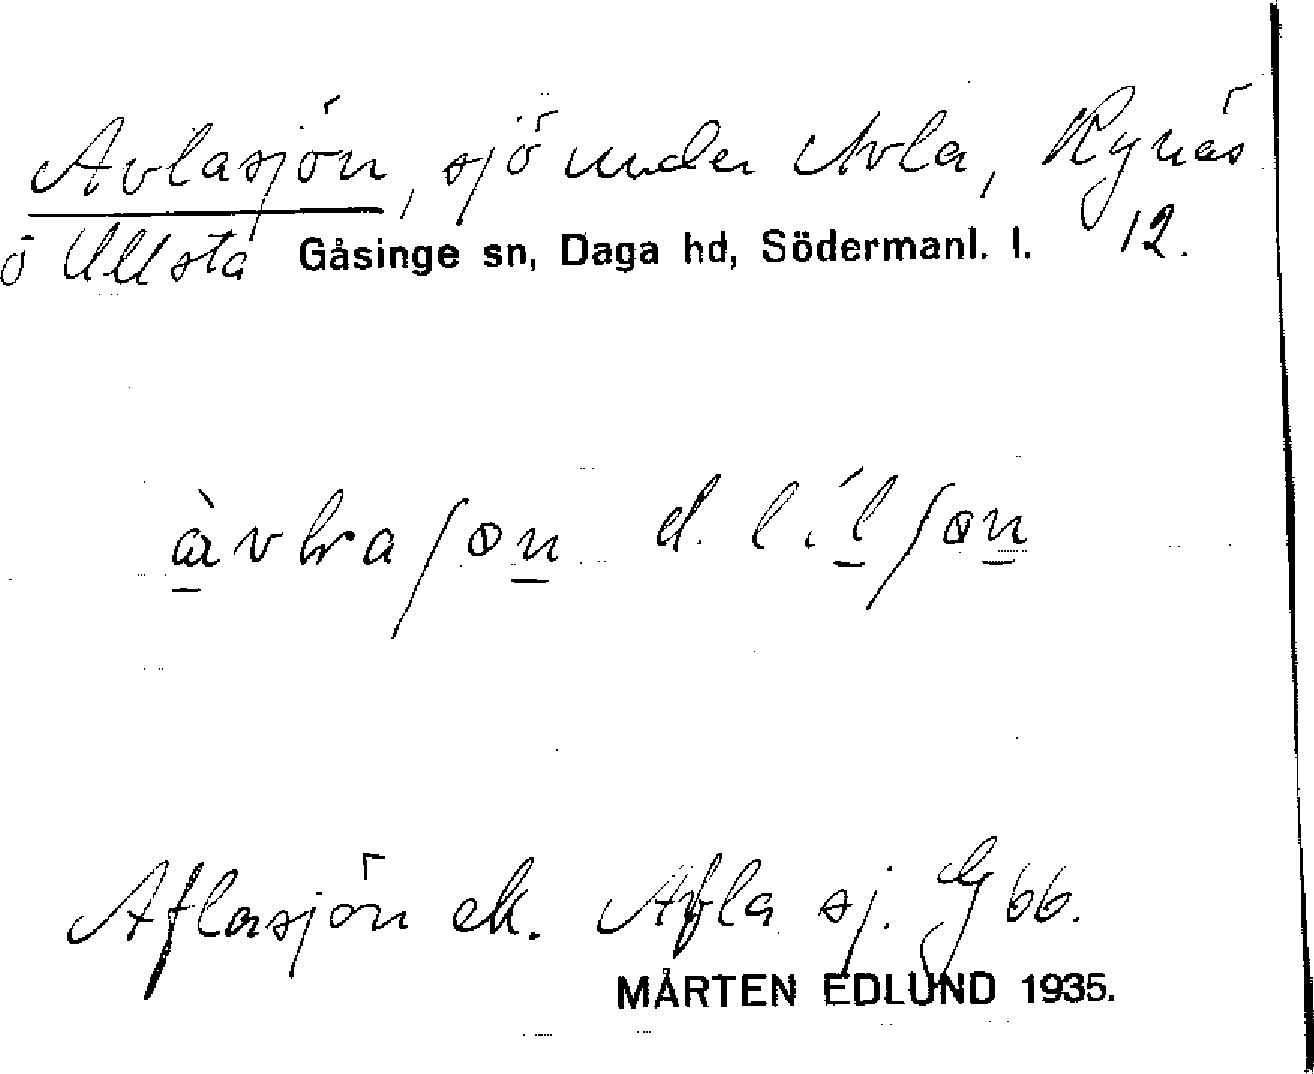 Avlasjön, sjö under Avla, Rynäs
o Ullsta Gåsinge sn, Daga hd, Södermanl. l. 12.
Aflasjön ek. Afla sj. G 66.
MÅRTEN EDLUND 1935.